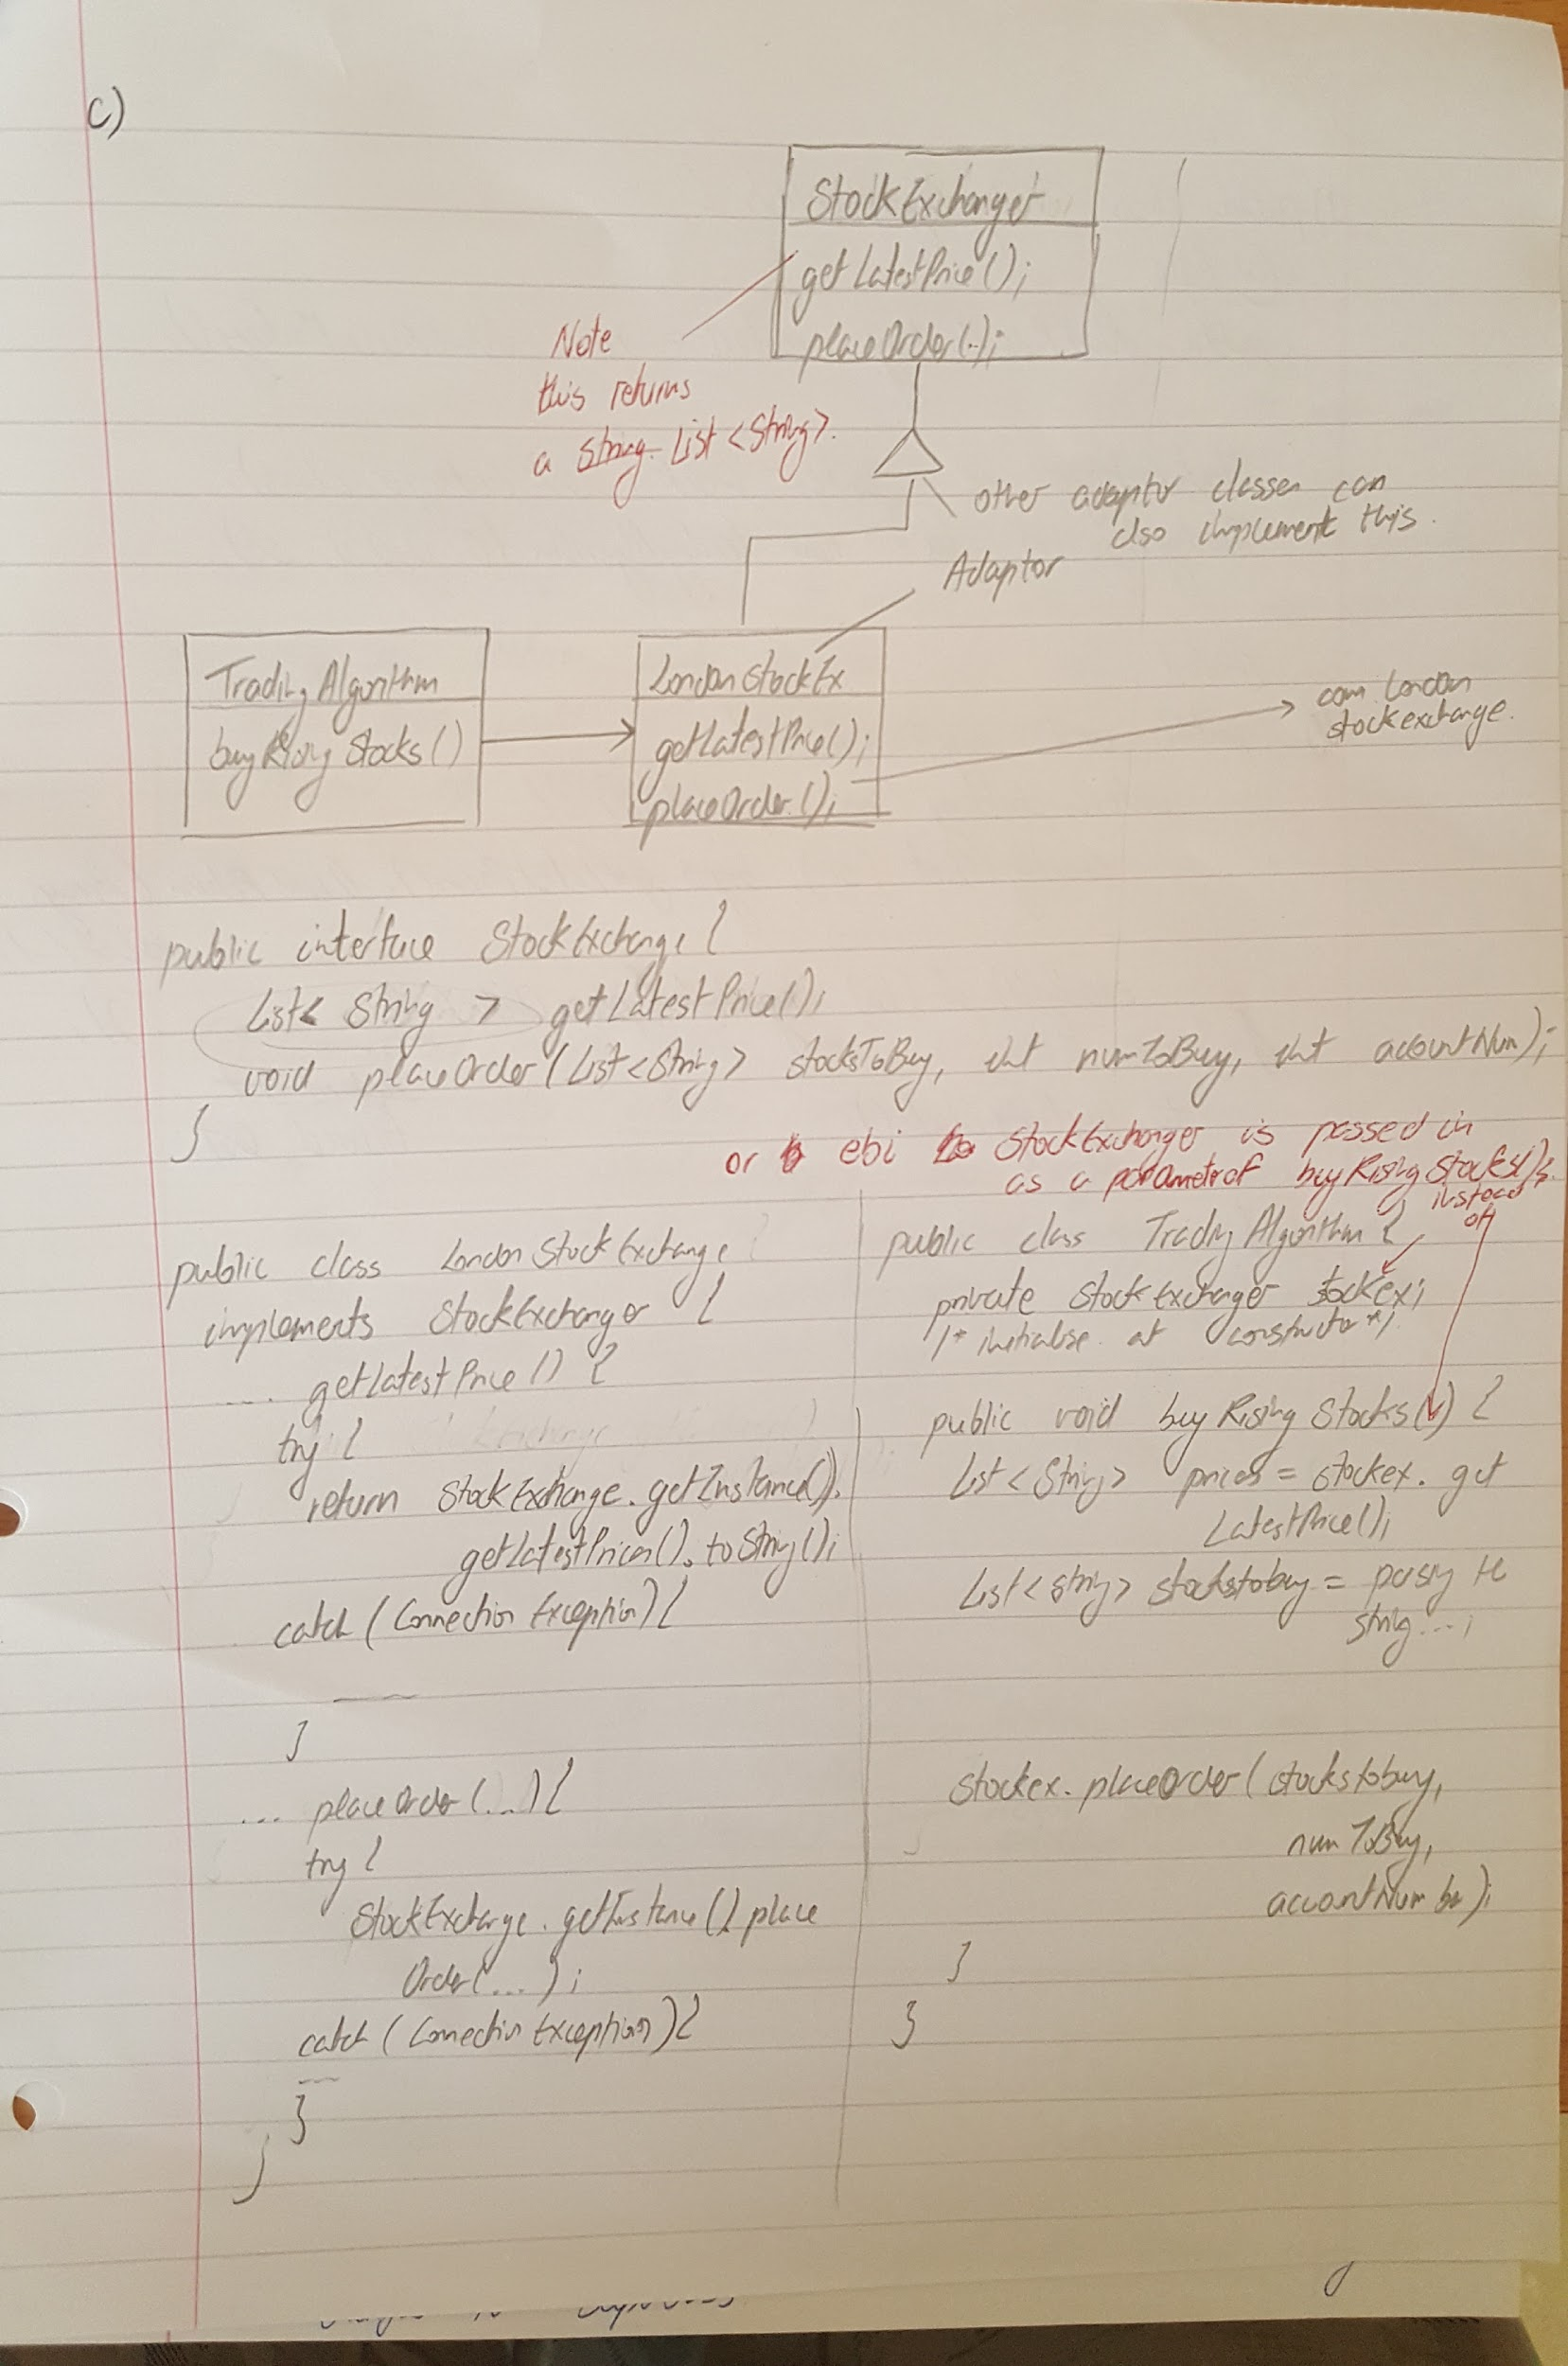 c)
StockExchanger
getLatestPrice();
placeOrder(..);
Note
this returns
a String. List <String>.
other adaptor classes can
also implement this.
Adaptor
TradingAlgorithm
buyRisingStocks()
LondonStockEx
getLatestPrice();
placeOrder.();
com.London
stockexchange.
public interface StockExchange {
List< String > getLatestPrice();
void placeOrder(List<String> stocksToBuy, int numToBuy, int accountNum);
}
or ebi StockExchanger is passed in
as a parameter of buyRisingStocks()
instead
of
public class LondonStockExchange
implements StockExchanger {
... getLatestPrice() {
try {
return StockExchange.getInstance().
getLatestPrices().toString();
catch (Connection Exception) {
}
... placeOrder(...) {
try {
StockExchange.getInstance().place
Order(...);
catch (Connection Exception) {
}
}
public class TradingAlgorithm {
private StockExchanger stockex;
/* initialise at constructor */
public void buyRisingStocks() {
List <String> prices = stockex. get
LatestPrice();
List<string> stockstobuy = parsing the
string...;
stockex.placeOrder(stockstobuy,
numToBuy,
accountNumber);
}
}